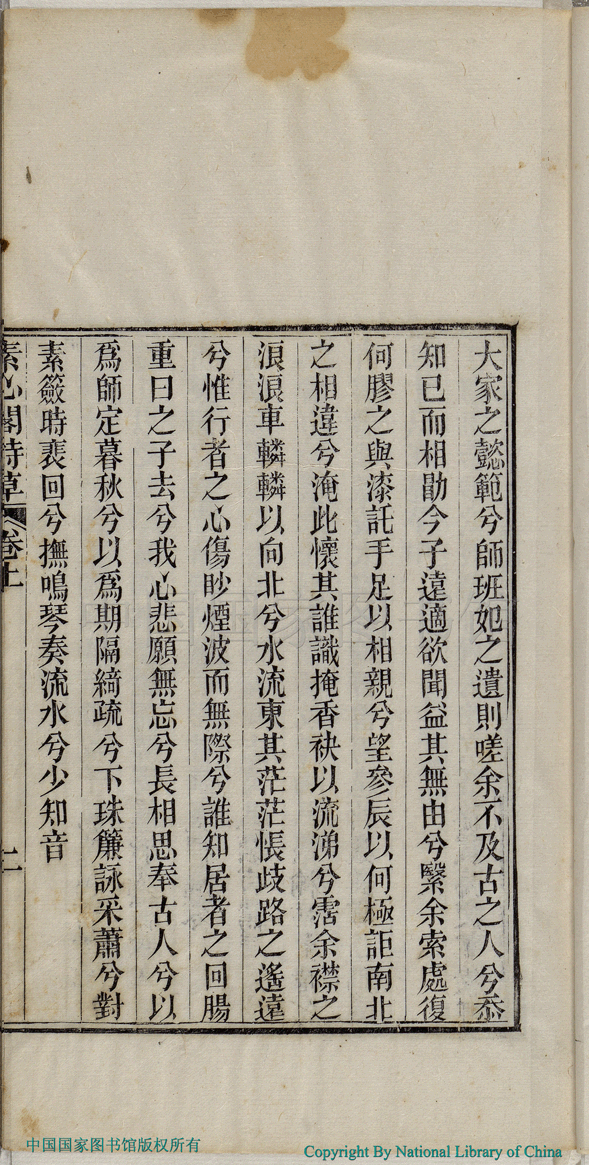 大家之懿範兮師班妃之遺則嗟余不及古之人兮忝
知已而相勖今子遠適欲聞益其無由兮繄余索處復
何膠之與漆託手足以相親兮望參辰以何極詎南北
之相違兮淹此懷其誰識掩香袂以流涕兮霑余襟之
浪浪車轔轔以向北兮水流東其茫茫悵歧路之遙遠
兮惟行者之心傷眇煙波而無際兮誰知居者之回腸
重曰之子去兮我心悲願無忘兮長相思奉古人兮以
爲師定暮秋兮以爲期隔綺疏兮下珠簾詠采蕭兮對
素簽時裴回兮撫鳴琴奏流水兮少知音
素心閣詩草 卷上 二
中国国家图书馆版权所有
Copyright By National Library of China